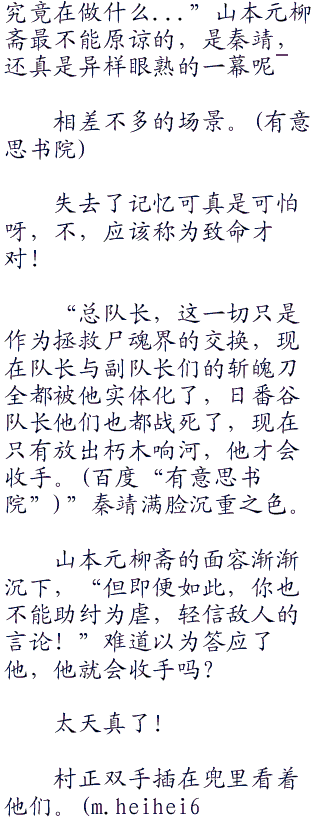 究竟在做什么...”山本元柳
斋最不能原谅的，是秦靖，
还真是异样眼熟的一幕呢
相差不多的场景。(有意
思书院)
失去了记忆可真是可怕
呀，不，应该称为致命才
对！
“总队长，这一切只是
作为拯救尸魂界的交换，现
在队长与副队长们的斩魄刀
全都被他实体化了，日番谷
队长他们也都战死了，现在
只有放出朽木响河，他才会
收手。(百度“有意思书
院”)”秦靖满脸沉重之色。
山本元柳斋的面容渐渐
沉下，“但即便如此，你也
不能助纣为虐，轻信敌人的
言论！”难道以为答应了
他，他就会收手吗？
太天真了！
村正双手插在兜里看着
他们。(m.heihei6